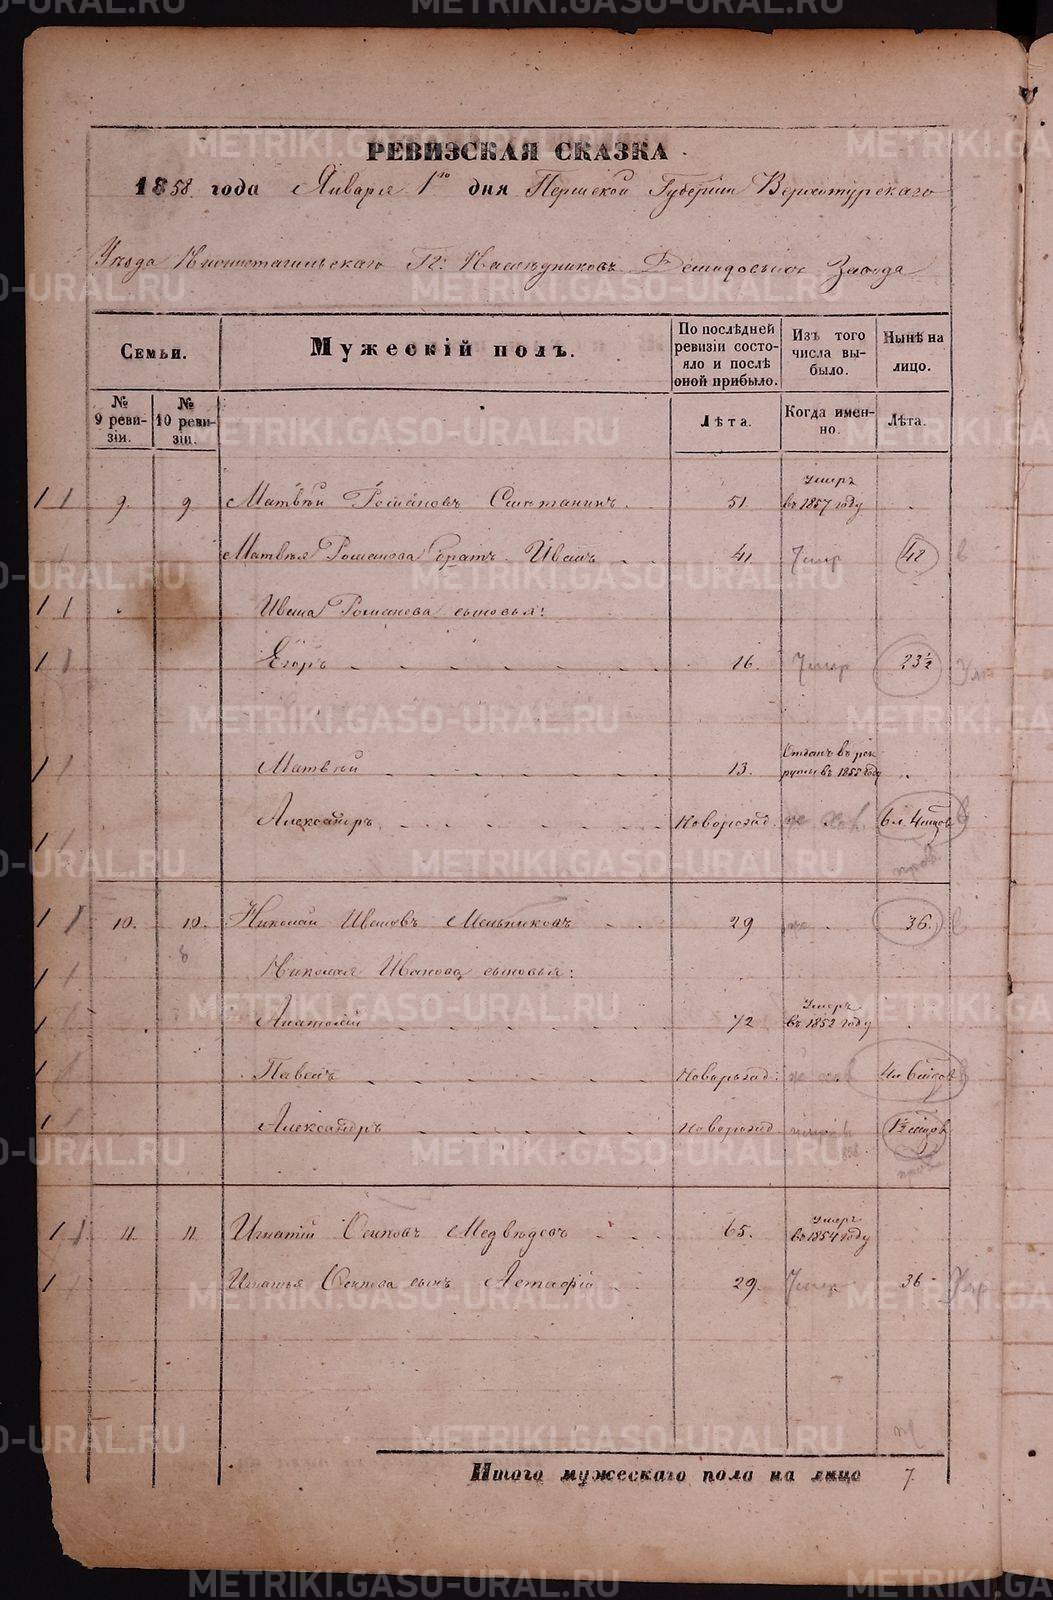 РЕВИЗСКАЯ СКАЗКА
1858 года Января 1го дня Пермской Губерніи Верхотурскаго
Уѣзда Нижнетагильскаго Гг. Наслѣдниковъ Демидовыхъ Завода
Семьи.
Мужескій полъ.
По послѣдней ревизіи состояло и послѣ оной прибыло.
Изъ того числа выбыло.
Нынѣ на лицо.
№ 9 ревизіи.
№ 10 ревизіи.
Лѣта.
Когда именно.
Лѣта.
9. 9 Матвѣй Романовъ Сметанинъ 51. Умеръ въ 1857 году
Матвѣя Романова братъ Иванъ 41. Умер 48
Ивана Романова сыновья:
Егоръ 16. Умер 23½
Матвѣй 13. Отданъ въ рекруты въ 1855 году
Александръ Новорожд. 6 л. 4 мцовъ
10. 10. Николай Ивановъ Мельниковъ 29 36.
Николая Иванова сыновья:
Анатолій ½ Умеръ въ 1852 году
Павелъ Новорожд. 4 л 6 мцовъ
Александръ Новорожд. 1½ мцовъ
11 11 Игнатій Осиповъ Медвѣдевъ 65. Умеръ въ 1854 году
Игнатья Осипова сынъ Астафій 29. Умер 36
Итого мужескаго пола на лицо 7.
METRIKI.GASO-URAL.RU